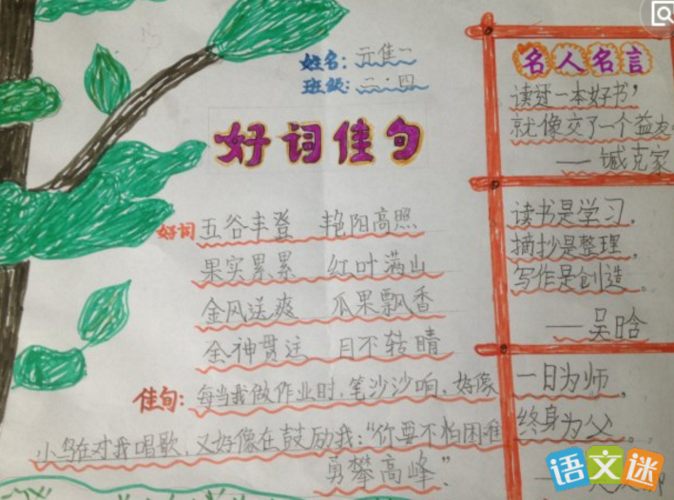 姓名：亓佳一
班级：二·四
好词佳句
好词 五谷丰登 艳阳高照
果实累累 红叶满山
金风送爽 瓜果飘香
全神贯注 目不转晴
佳句：每当我做作业时，笔沙沙响，好像
小鸟在对我唱歌，又好像在鼓励我：“你要不怕困难
勇攀高峰”．
名人名言
读过一本好书，
就像交了一个益友
——臧克家
读书是学习，
摘抄是整理，
写作是创造。
——吴晗
一日为师，
终身为父。
语文迷